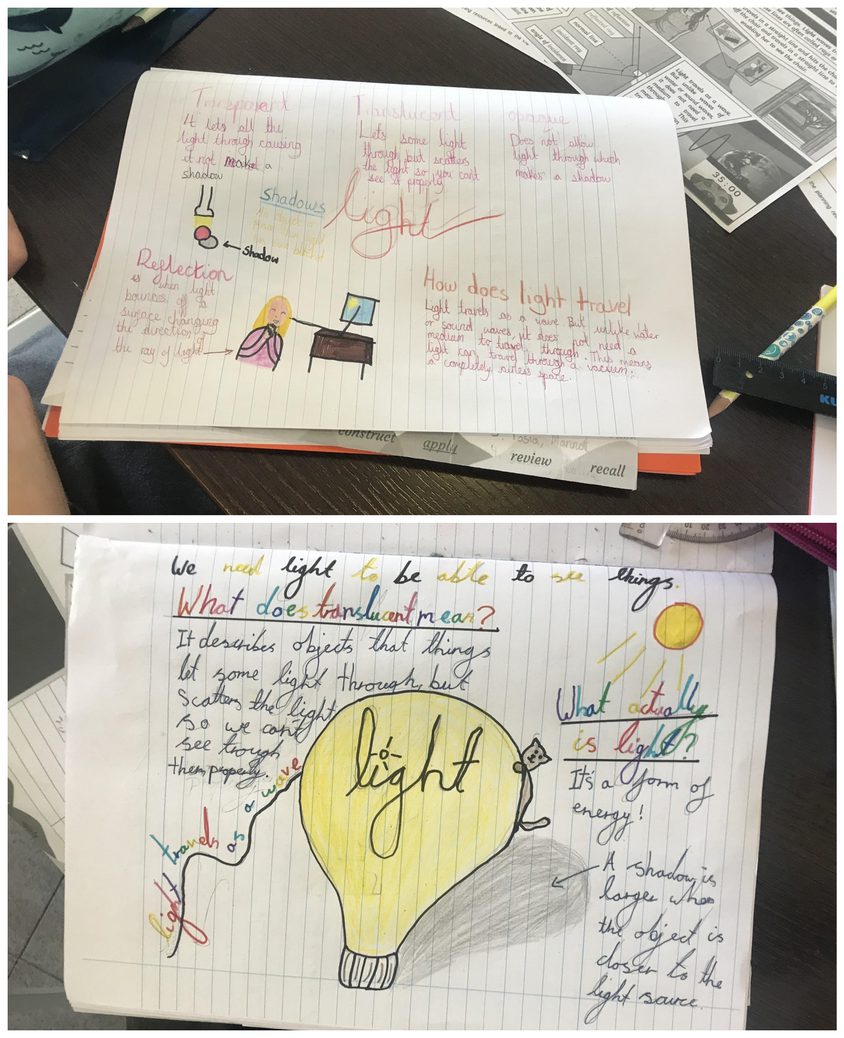 Transparent
It lets all the
light through causing
it not make a
shadow
Translucent
Lets some light
through but scatters
the light so you cant
see it properly
opaque
Does not allow
light through which
makes a shadow
Shadows
light
shadow
Reflection
is when light
bounces off a
surface changing
the direction of
the ray of light
How does light travel
Light travels as a wave. But unlike water
or sound waves, it does not need a
medium to travel through. This means
light can travel through a vacuum;
a completely airless space.
construct
apply
review
recall
35:00
Light travels as a wave.
But unlike waves of
water or sound waves,
it does not need a
medium to travel
through. This
means
normal line
angle of
We need light to be able to see things.
What does translucent mean?
It describes objects that things
let some light through, but
scatters the light
so we can't
see trough
them properly.
light travels as a wave
light
What actually
is light?
It's a form of
energy!
A shadow is
larger when
the object is
closer to the
light source.